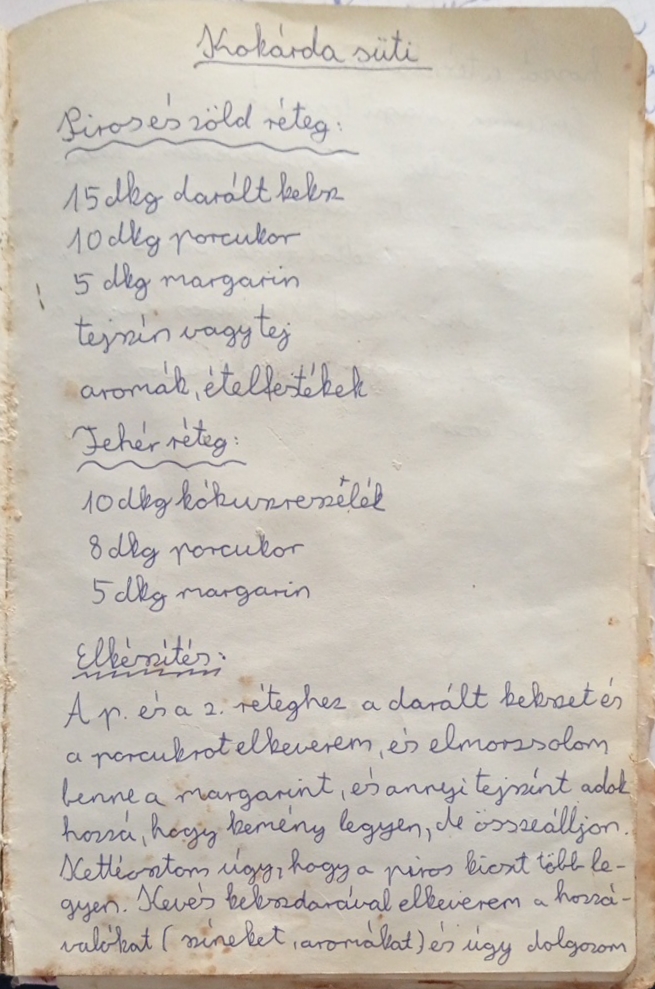 Kokárda süti
Piros és zöld réteg:
15 dkg darált keksz
10 dkg porcukor
5 dkg margarin
tejszín vagy tej
aromák, ételfestékek
Fehér réteg:
10 dkg kókuszreszelék
8 dkg porcukor
5 dkg margarin
Elkészítés:
A p. és a z. réteghez a darált kekszet és
a porcukrot elkeverem, és elmorzsolom
benne a margarint, és annyi tejszínt adok
hozzá, hogy kemény legyen, de összeálljon.
Kettéosztom úgy, hogy a piros kicsit több le-
gyen. Kevés kekszdarával elkeverem a hozzá-
valókat (színeket, aromákat) és úgy dolgozom